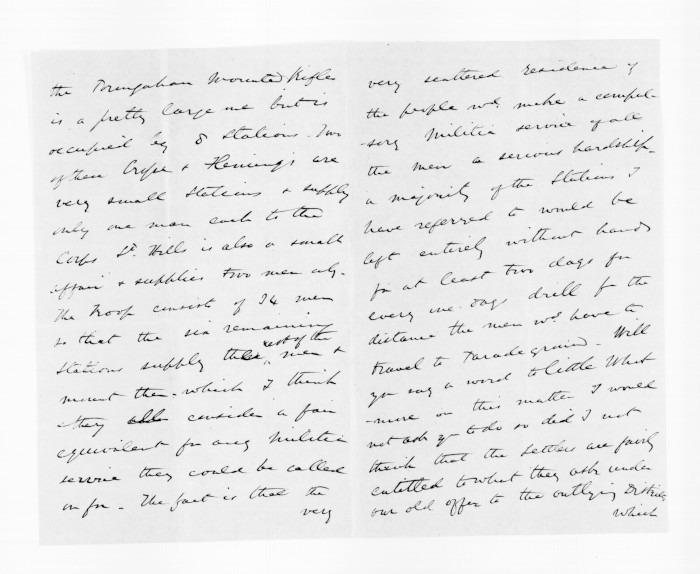 the Porangahau Mounted Rifles
is a pretty large one but is
occupied by 8 Stations. Two
of these & Flemings are
very small Stations & supply
only one man each to the
Corps St. Hills is also a small
affair & supplies two men only.
The Troop consist of 34 men
so that the six remaining
Stations supply the rest of the men &
mount them - which I think
they consider a fair
equivalent for any Militia
service they could be called
on for - The fact is that the
very
very scattered residence of
the people wd. make a compul-
sory Militia service of all
the men a serious hardship -
a majority of the Stations I
have referred to would be
left entirely without hands
for at least two days for
every one days drill for the
distance the men wd. have to
travel to Parade ground - Will
you say a word to little Whit
-more on this matter I would
not ask you to do so did I not
think that the settlers are fairly
entitled to what they ask under
our old offer to the outlying Districts
which